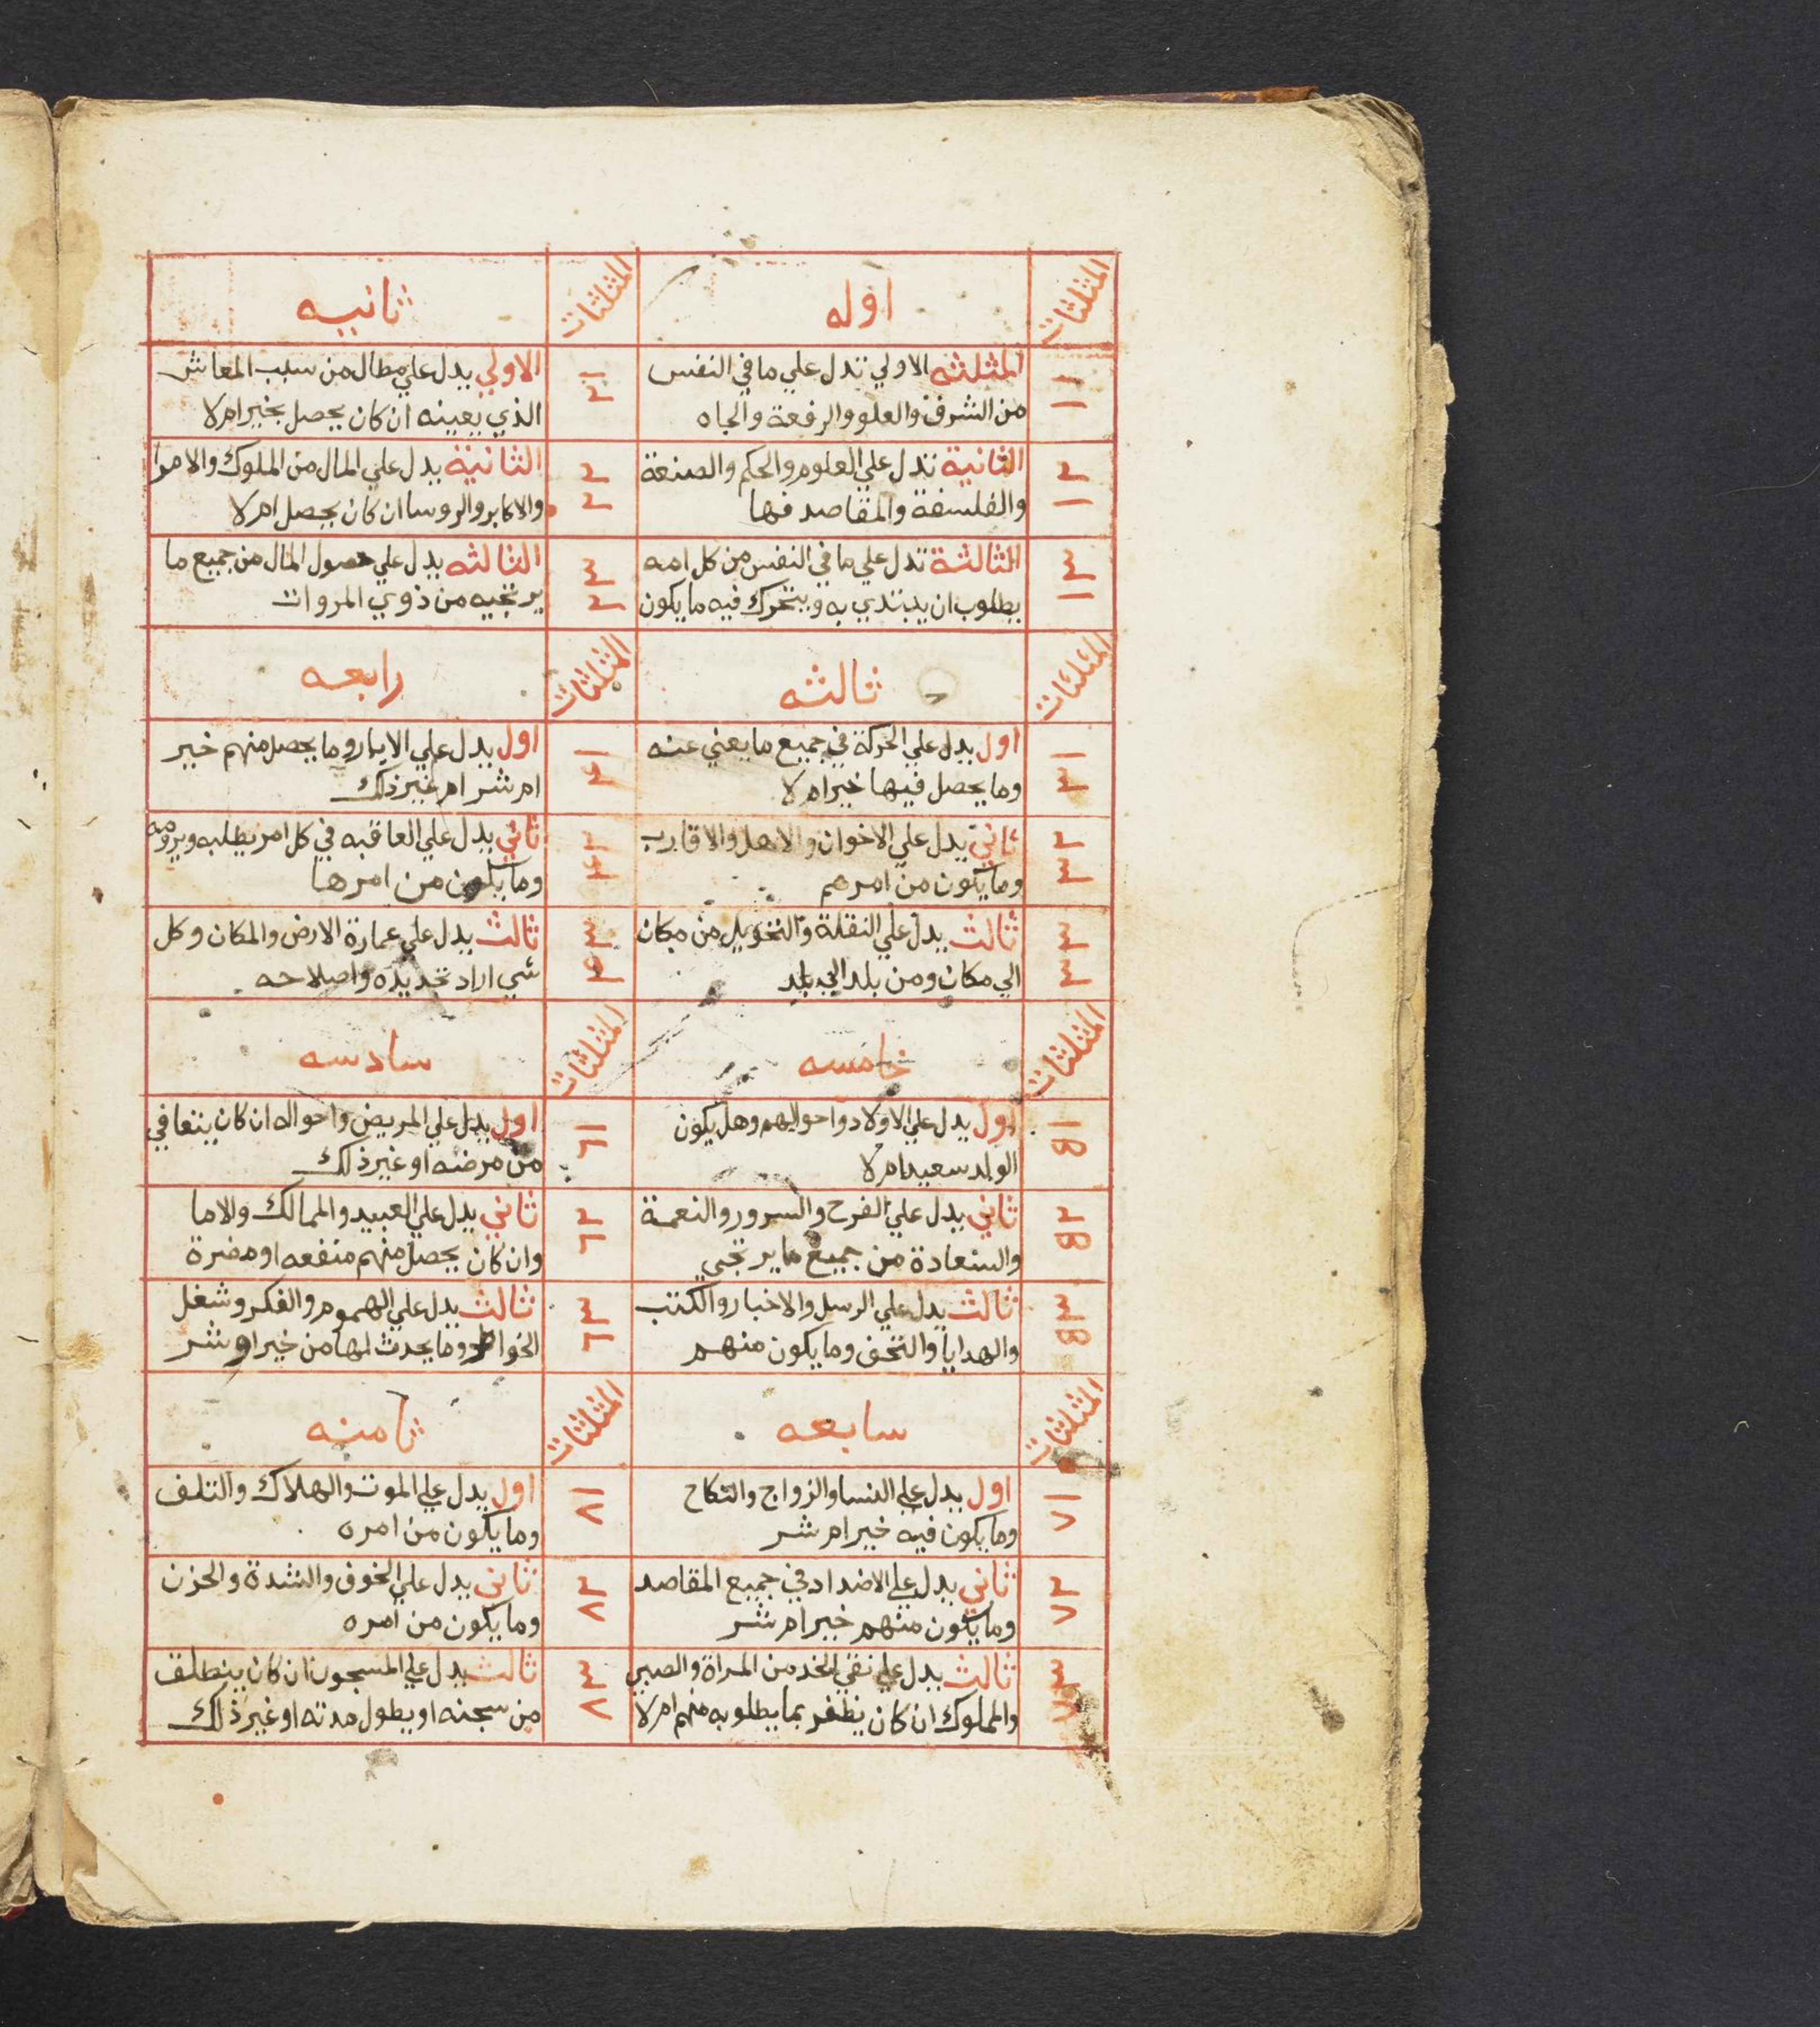 المثلثات
اوله
المثلثات
ثانيه
١
١
المثلثه الاولي تدل علي ما في النفس
من الشرف والعلو والرفعة والجاه
١
٢
الاولي يدل علي من سبب المعاش
الذي يعينه ان كان يحصل بخير ام لا
٢
١
الثانية تدل علي العلوم والحكم والصنعة
والفلسفة والمقاصد فيها
٢
٢
الثانية يدل علي المال من الملوك والامرا
والاكابر والروسا ان كان يحصل ام لا
٣
١
الثالثة تدل علي ما في النفس من كل امه
يطلوب ان يبتدي به ويتحرك فيه ما يكون
٣
٢
الثالثه يدل علي حصول المال من جميع ما
يرتجيه من ذوي المروات
المثلثات
ثالثه
المثلثات
رابعه
١
٣
اول يدل علي الحركة في جميع ما يعني عنه
وما يحصل فيها خير ام لا
١
٤
اول يدل علي وما يحصل منهم خير
ام شر ام غير ذلك
٢
٣
ثاني يدل علي الاخوان والاهل والاقارب
وما يكون من امرهم
٢
٤
ثاني يدل علي العاقبه في كل امر يطلبه ويرومه
وما يكون من امرها
٣
٣
ثالث يدل علي النقلة والتحويل من مكان
الي مكان ومن بلد الي بلد
٣
٤
ثالث يدل علي عمارة الارض والمكان وكل
شي اراد تجديده واصلاحه
المثلثات
خامسه
المثلثات
سادسه
١
٥
اول يدل علي الاولاد واحوالهم وهل يكون
الولد سعيد ام لا
١
٦
اول يدل علي المريض واحواله ان كان يتعافي
من مرضه او غير ذلك
٢
٥
ثاني يدل علي الفرح والسرور والنعمة
والسعادة من جميع ما يرتجي
٢
٦
ثاني يدل علي العبيد والممالك والاما
وان كان يحصل منهم منفعه او مضرة
٣
٥
ثالث يدل علي الرسل والاخبار والكتب
والهدايا والتحف وما يكون منهم
٣
٦
ثالث يدل علي الهموم والفكر وشغل
الخواطر وما يحدث لها من خير او شر
المثلثات
سابعه
المثلثات
ثامنه
١
٧
اول يدل علي النسا والزواج والنكاح
وما يكون فيه خير ام شر
١
٨
اول يدل علي الموت والهلاك والتلف
وما يكون من امره
٢
٧
ثاني يدل علي الاضداد في جميع المقاصد
وما يكون منهم خير ام شر
٢
٨
ثاني يدل علي الخوف والشدة والحزن
وما يكون من امره
٣
٧
ثالث يدل علي نقي الخد من المراة والصبي
والمملوك ان كان يظفر بما يطلوبه منهم ام لا
٣
٨
ثالث يدل علي المسجون ان كان ينطلق
من سجنه او يطول مدته او غير ذلك